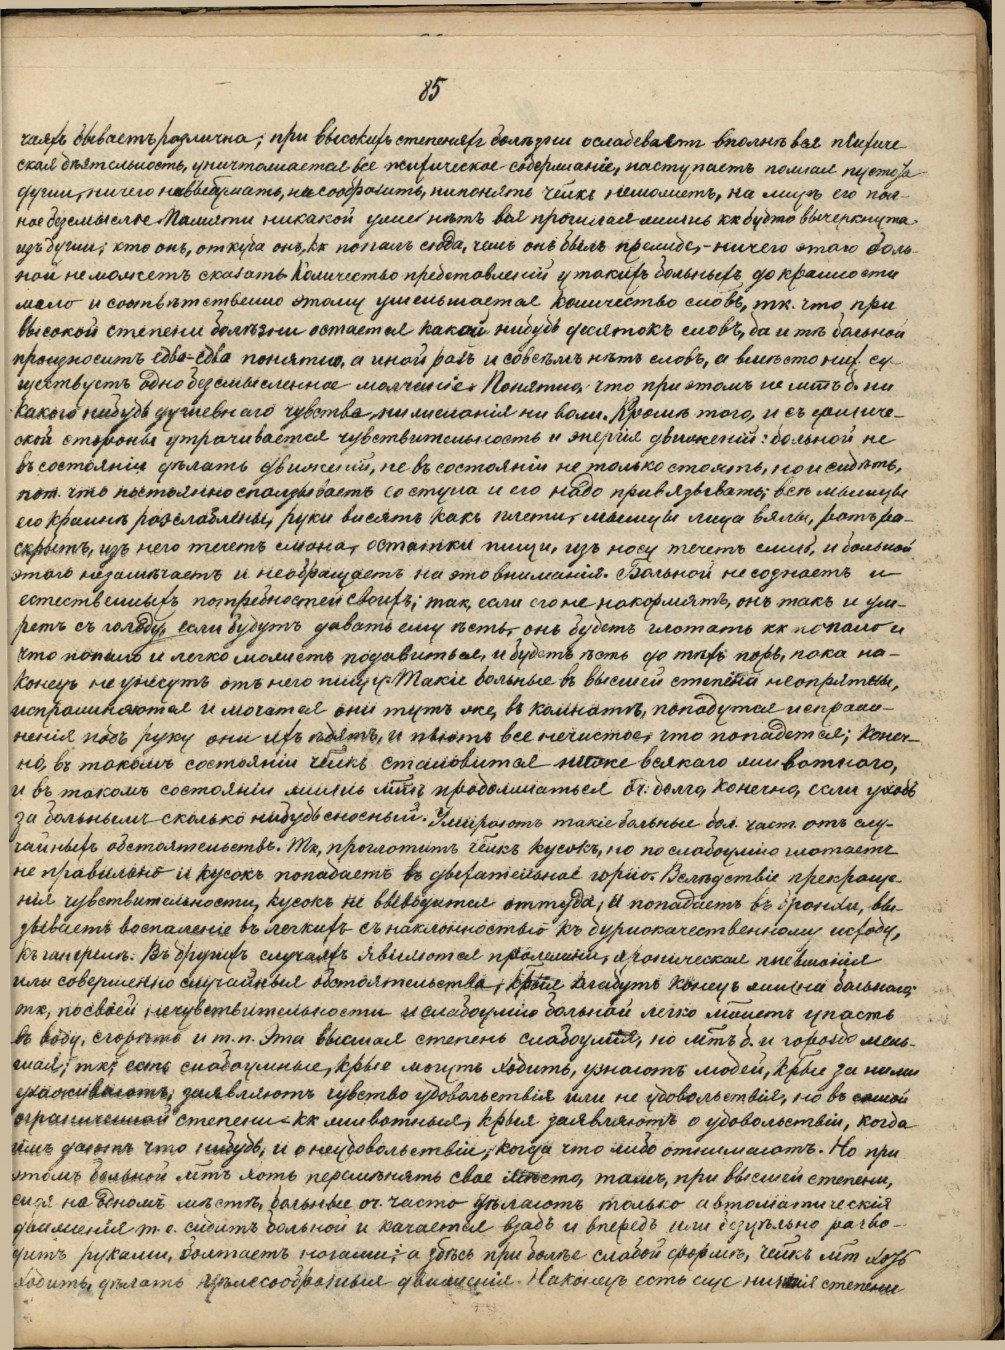 85
чаяхъ бываетъ различна; при высокихъ степеняхъ болѣзни ослабеваетъ вполнѣ вся психиче-
ская дѣятельность, уничтожается все психическое содержаніе, наступаетъ полная пустота
души, ничего не выдумать, не сообразить, ни понять чѣлкъ неможетъ, на лицѣ его пол-
ное безсмысліе. Памяти никакой уже нѣтъ вся прошлая жизнь кк будто вычеркнута
изъ души; кто онъ, откуда онъ, кк попалъ сюда, чемъ онъ былъ прежде, - ничего этого боль-
ной не можетъ сказать. Количество представленій у такихъ больныхъ до крайности
мало и соотвѣтственно этому уменьшается количество словъ, тк. что при
высокой степени болѣзни остается какой нибудь десятокъ словъ, да и тѣ больной
произноситъ едва-едва понятно, а иной разъ и совсѣмъ нѣтъ словъ, а вмѣсто них су-
ществуетъ одно безсмысленное молченіе. Понятно, что при этомъ не мтъ б. ни
какого нибудь душевнаго чувства, ни желанія ни воли. Кромѣ того, и съ физиче-
ской стороны утрачивается чувствительность и энергія движеній: больной не
въ состояніи дѣлать движеній, не въ состояніи не только стоять, но и сидѣть,
пот. что постоянно сползываетъ со стула и его надо привязывать; всѣ мышцы
его крайнѣ разслаблены, руки висятъ какъ плети, мышцы лица вялы, ротъ ра-
скрытъ, изъ него течетъ слюна, остатки пищи, изъ носу течетъ слизь, и больной
этого незамѣчаетъ и необращаетъ на это вниманія. Больной не сознаетъ и
естественныхъ потребностей своихъ; так, если его не накормятъ, онъ такъ и ум-
ретъ съ голоду, если будутъ давать ему ѣсть, онъ будетъ глотать кк попало и
что попало и легко можетъ подавиться, и будетъ ѣсть до тѣхъ поръ, пока на-
конецъ не унесутъ отъ него пищу. Такіе больные въ высшей степени неопрятны,
испражняются и мочатся они тутъ же, въ комнатѣ, попадутся испраж-
ненія подъ руку они ихъ ѣдятъ, и пьютъ все нечистое, что попадется; конеч-
но, въ такомъ состояніи чѣлкъ становится ниже всякаго животнаго,
и въ такомъ состояніи жизнь мтъ продолжаться оч. долго, конечно, если уходъ
за больнымъ сколько нибудь сносный. Умираютъ такіе больные бол. част. отъ слу-
чайныхъ обстоятельствъ. Тк, проглотитъ чѣлкъ кусокъ, но по слабоумію глотаетъ
не правильно и кусокъ попадаетъ въ дыхательное горло. Вслѣдствіе прекраще-
нія чувствительности, кусокъ не выводится оттуда, и попадаетъ въ бронхи, вы-
зываетъ воспаленіе въ легкихъ съ наклонностью къ буриокачественному исходу,
къ гангренѣ. Въ другихъ случаяхъ являются пролежни, хроническая пневмонія
или совершенно случайныя обстоятельства, крыя кладутъ конецъ жизни больнаго;
тк, по своей нечувствительности и слабоумію больной легко можетъ упасть
въ воду, сгорѣть и т. п. Эта высшая степень слабоумія, но мтъ б. и гораздо мень-
шая; тк, есть слабоумные, крые могутъ ходить, узнаютъ людей, крые за ними
ухаживаютъ, заявляютъ чувство удовольствія или не удовольствія, но въ самой
ограниченной степени - кк животныя, крыя заявляютъ о удовольствіи, когда
имъ даютъ что нибудь, и о неудовольствіи, когда что либо отнимаютъ. Но при
этомъ больной мтъ хоть перемѣнять свое мѣсто, тамъ, при высшей степени,
сидя на одномъ мѣстѣ, больные оч. часто дѣлаютъ только автоматическія
движенія т. е. сидитъ больной и качается взадъ и впередъ или безцѣльно разво-
дитъ руками, болтаетъ ногами; а здѣсь при болѣе слабой формѣ, чѣлкъ мтъ хоть
ходить, дѣлать цѣлесообразныя движенія. Наконецъ есть еще низшія степени